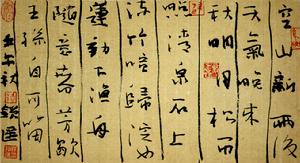 空山新雨後
天氣晚来
秋明月松间
照清泉石上
流竹喧歸浣女
蓮動下漁舟
随意春芳歇
王孫自可留
壬午秋